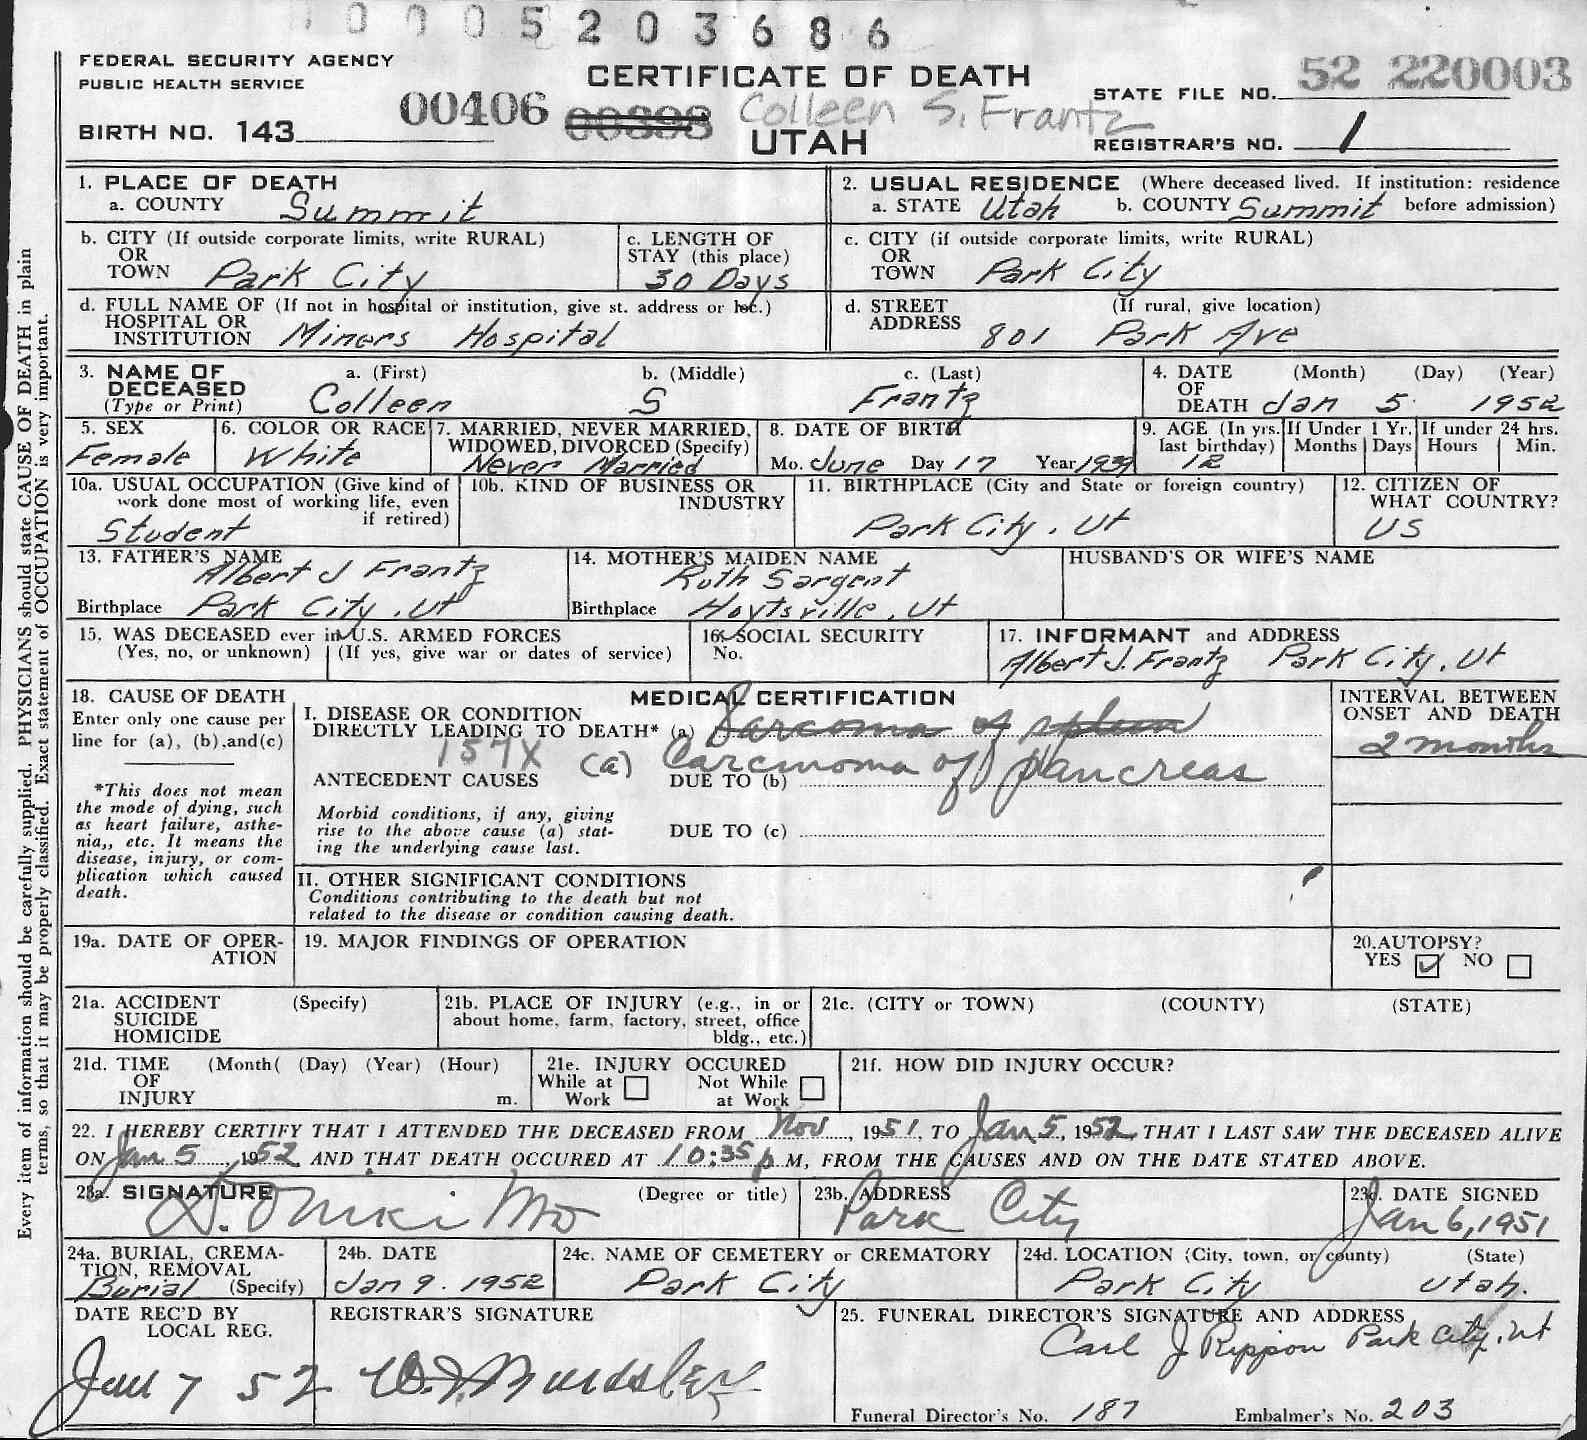 0005203686
FEDERAL SECURITY AGENCY
PUBLIC HEALTH SERVICE
CERTIFICATE OF DEATH
UTAH
Colleen S. Frantz
STATE FILE NO. 52 220003
00406 00398
BIRTH NO. 143
REGISTRAR'S NO. 1
Every item of information should be carefully supplied. PHYSICIANS should state CAUSE OF DEATH in plain
terms, so that it may be properly classified. Exact statement of OCCUPATION is very important.
1. PLACE OF DEATH
a. COUNTY Summit
2. USUAL RESIDENCE (Where deceased lived. If institution: residence
a. STATE Utah b. COUNTY Summit before admission)
b. CITY (If outside corporate limits, write RURAL)
OR
TOWN Park City
c. LENGTH OF
STAY (this place)
30 Days
c. CITY (if outside corporate limits, write RURAL)
OR
TOWN Park City
d. FULL NAME OF (If not in hospital or institution, give st. address or loc.)
HOSPITAL OR
INSTITUTION Miners Hospital
d. STREET (If rural, give location)
ADDRESS 801 Park Ave
3. NAME OF
DECEASED
(Type or Print)
a. (First) b. (Middle) c. (Last)
Colleen S Frantz
4. DATE (Month) (Day) (Year)
OF
DEATH Jan 5 1952
5. SEX
Female
6. COLOR OR RACE
White
7. MARRIED, NEVER MARRIED,
WIDOWED, DIVORCED (Specify)
Never Married
8. DATE OF BIRTH
Mo. June Day 17 Year 1939
9. AGE (In yrs.
last birthday)
12
If Under 1 Yr.
Months Days
If under 24 hrs.
Hours Min.
10a. USUAL OCCUPATION (Give kind of
work done most of working life, even
if retired)
Student
10b. KIND OF BUSINESS OR
INDUSTRY
11. BIRTHPLACE (City and State or foreign country)
Park City, Ut
12. CITIZEN OF
WHAT COUNTRY?
US
13. FATHER'S NAME
Albert J Frantz
Birthplace Park City, Ut
14. MOTHER'S MAIDEN NAME
Ruth Sargent
Birthplace Hoytsville, Ut
HUSBAND'S OR WIFE'S NAME
15. WAS DECEASED ever in U.S. ARMED FORCES
(Yes, no, or unknown) (If yes, give war or dates of service)
16. SOCIAL SECURITY
No.
17. INFORMANT and ADDRESS
Albert J. Frantz Park City, Ut
18. CAUSE OF DEATH
Enter only one cause per
line for (a), (b), and (c)
*This does not mean
the mode of dying, such
as heart failure, asthe-
nia,, etc. It means the
disease, injury, or com-
plication which caused
death.
MEDICAL CERTIFICATION
I. DISEASE OR CONDITION
DIRECTLY LEADING TO DEATH* (a) Sarcoma of spleen
157X (a) Carcinoma of pancreas
ANTECEDENT CAUSES DUE TO (b)
Morbid conditions, if any, giving
rise to the above cause (a) stat-
ing the underlying cause last.
DUE TO (c)
INTERVAL BETWEEN
ONSET AND DEATH
2 months
II. OTHER SIGNIFICANT CONDITIONS
Conditions contributing to the death but not
related to the disease or condition causing death.
19a. DATE OF OPER-
ATION
19. MAJOR FINDINGS OF OPERATION
20. AUTOPSY?
YES ✓ NO
21a. ACCIDENT (Specify)
SUICIDE
HOMICIDE
21b. PLACE OF INJURY (e.g., in or
about home, farm, factory, street, office
bldg., etc.)
21c. (CITY or TOWN) (COUNTY) (STATE)
21d. TIME (Month( (Day) (Year) (Hour)
OF
INJURY m.
21e. INJURY OCCURED
While at Not While
Work at Work
21f. HOW DID INJURY OCCUR?
22. I HEREBY CERTIFY THAT I ATTENDED THE DECEASED FROM Nov, 1951, TO Jan 5, 1952, THAT I LAST SAW THE DECEASED ALIVE
ON Jan 5, 1952 AND THAT DEATH OCCURED AT 10:35 p M, FROM THE CAUSES AND ON THE DATE STATED ABOVE.
23a. SIGNATURE (Degree or title)
D. Oniki MD
23b. ADDRESS
Park City
23c. DATE SIGNED
Jan 6, 1951
24a. BURIAL, CREMA-
TION, REMOVAL
Burial (Specify)
24b. DATE
Jan 9. 1952
24c. NAME OF CEMETERY or CREMATORY
Park City
24d. LOCATION (City, town, or county) (State)
Park City Utah.
DATE REC'D BY
LOCAL REG.
Jan 7 52
REGISTRAR'S SIGNATURE
25. FUNERAL DIRECTOR'S SIGNATURE AND ADDRESS
Carl J Rippon Park City, Ut
Funeral Director's No. 187 Embalmer's No. 203